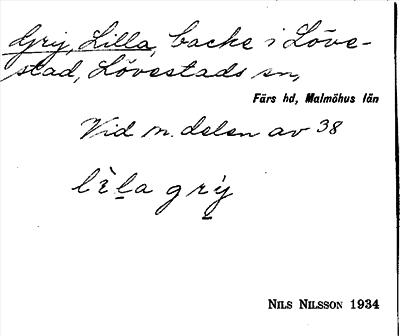 Gry, Lilla, backe i Löve-
stad, Lövestads sn,
Färs hd, Malmöhus län
Vid m. delen av 38
lìl̠a grý̠
NILS NILSSON 1934